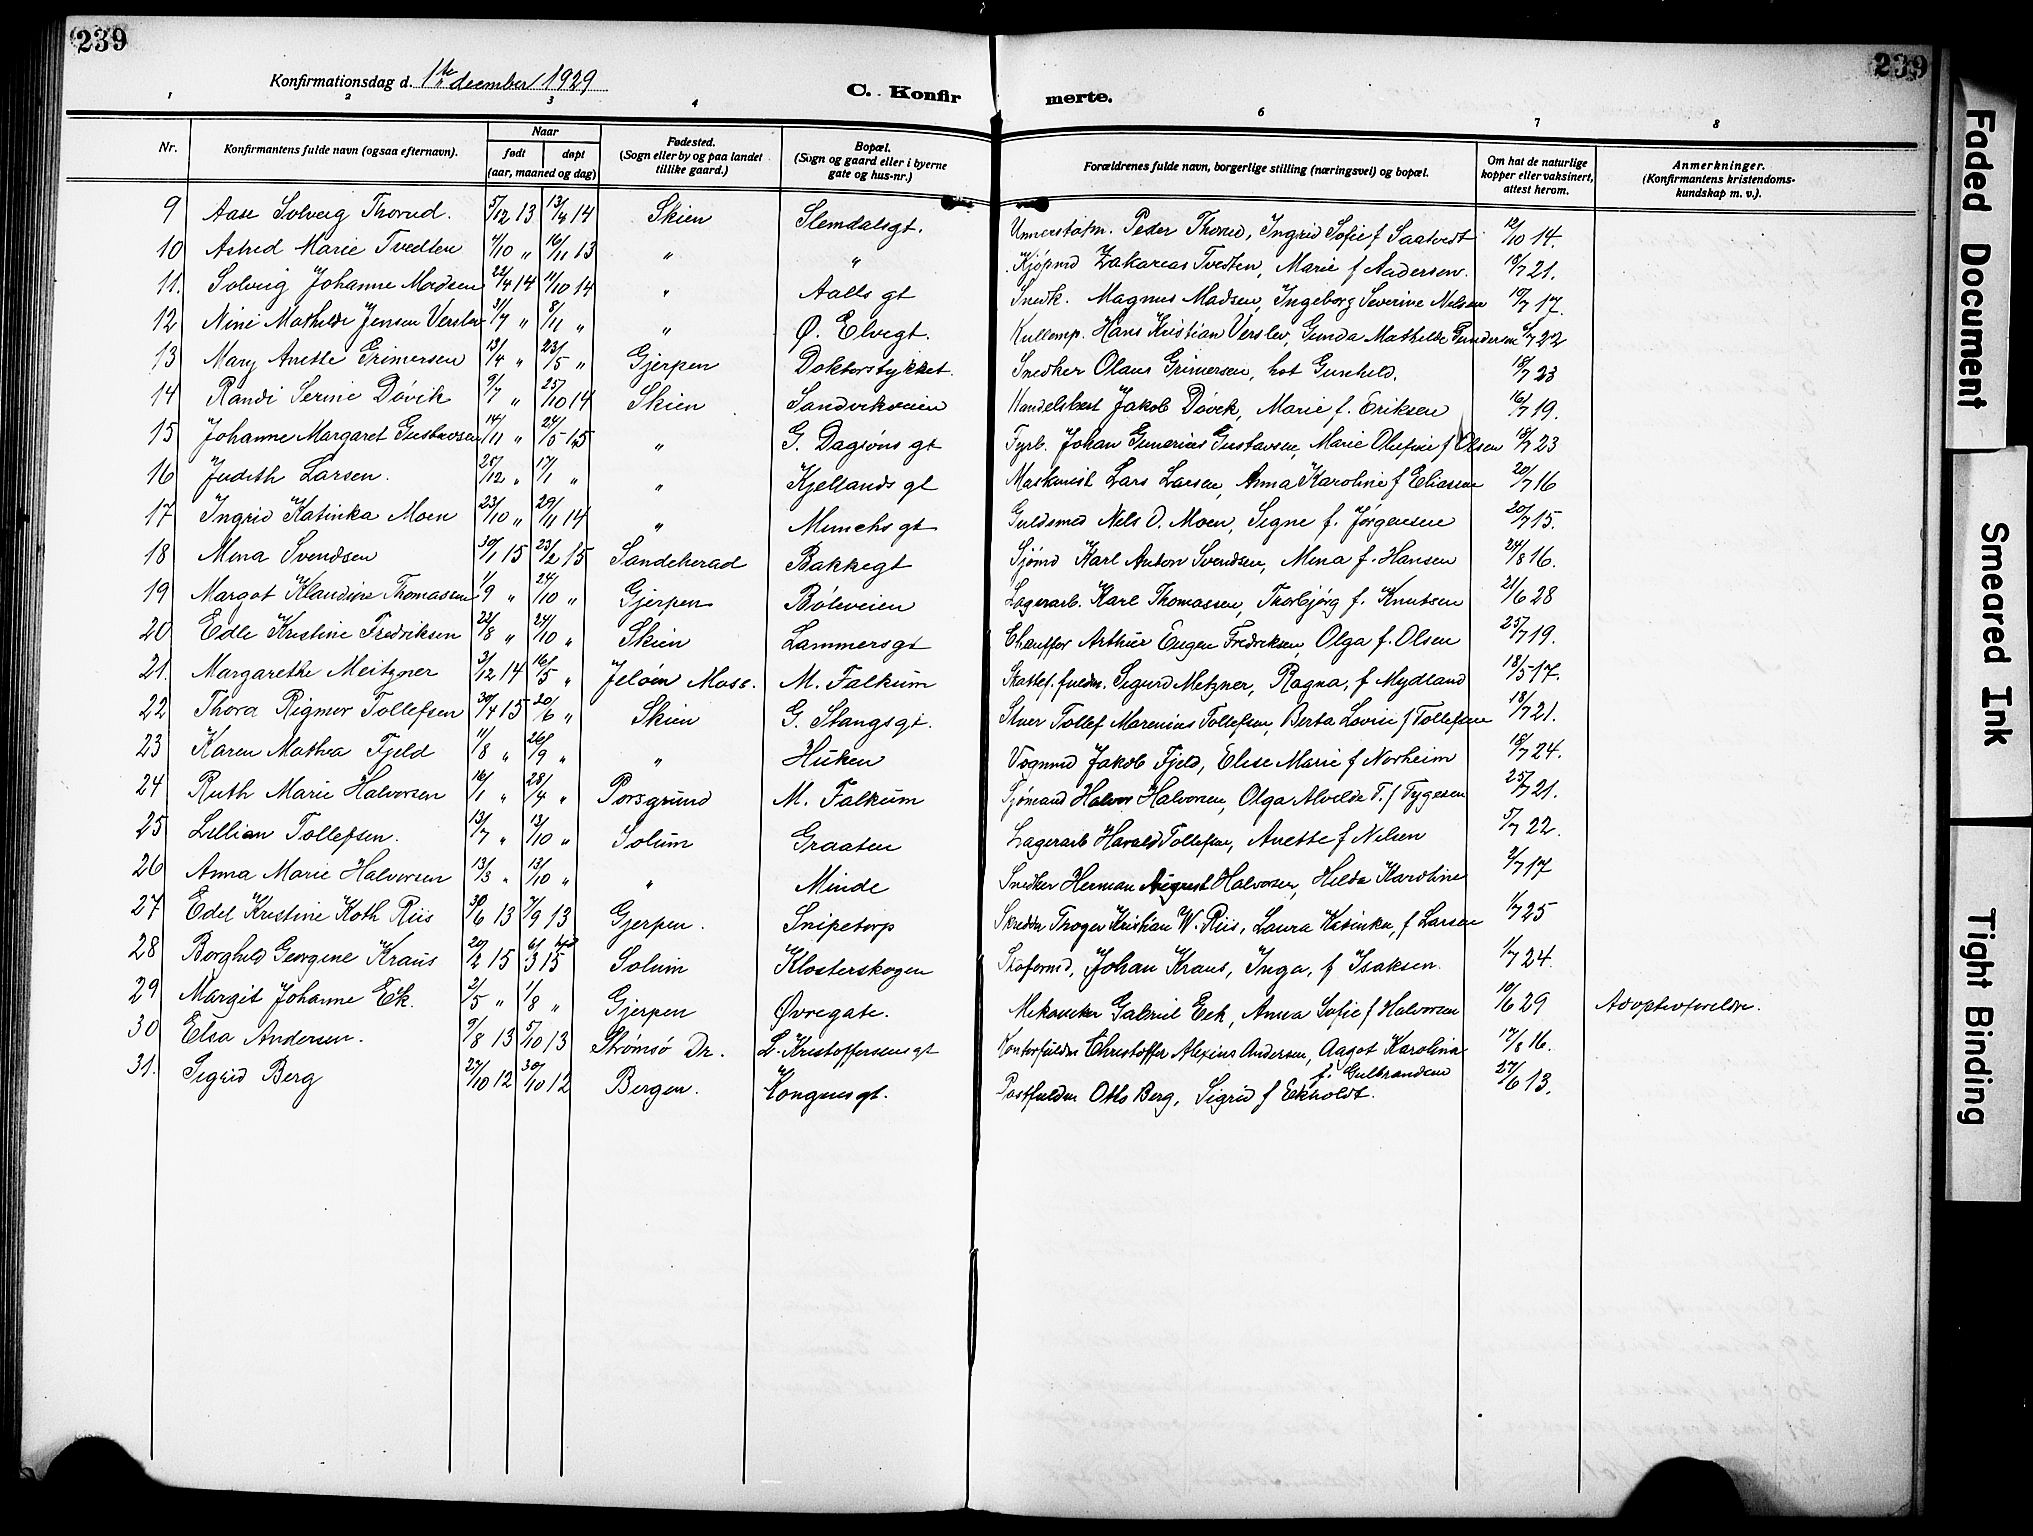 239
239
Konfirmationsdag d. 1ste december 1929
C. Konfirmerte.
1 2 3 4 6 7 8
Nr. Konfirmantens fulde navn (ogsaa efternavn). Naar født døpt (aar, maaned og dag) Fødested. (Sogn eller by og paa landet tillike gaard.) Bopæl. (Sogn og gaard eller i byerne gate og hus-nr.) Forældrenes fulde navn, borgerlige stilling (næringsvei) og bopæl. Om hat de naturlige kopper eller vaksinert, attest herom. Anmerkninger. (Konfirmantens kristendomskundskap m. v.).
9 Aase Solveig Thorud. 5/12 13 13/4 14 Skien Slemdalsgt. Peder Thorud, Ingrid Sofie f Saatvedt 12/10 14.
10 Astrid Marie Tvedten 4/10 " 16/11 13 " " Kjøpmd Zakarias Tvedten, Marie f Andersen. 18/7 21.
11. Solveig Johanne Madsen 22/4 14 11/10 14 " Aalls gt Snedk. Magnus Madsen, Ingeborg Severine Nelsen 10/7 17.
12 Nini Mathilde Jensen Verslev 31/7 " 8/11 " " Ø. Elvegt. Hans Kristian Verslev, Gunda Mathilde Gundersen 6/7 22
13 Mary Anette Grimersen 13/4 " 23/5 " Gjerpen Doktorstykket. Snedker Olaus Grimersen, hot Gunhild. 18/7 23
14 Randi Serine Døvik 9/7 " 25/10 14 Skien Sandvikveien Handelsbest Jakob Døvik, Marie f. Eriksen 16/7 19.
15 Johanne Margaret Gustavsen 14/11 " 24/5 15 " G. Dagsøns gt Fyrb. Johan Gunerius Gustavsen, Marie Olufine f Olsen 18/7 23
16 Judith Larsen. 25/12 " 17/1 " " Kjellands gt Maskinist Lars Larsen, Anna Karoline f Eliasen 20/7 16
17 Ingrid Katinka Moen 23/10 " 29/11 14 " Munchs gt Guldsmed Nels O. Moen, Signe f. Jørgensen 20/7 15.
18 Mena Svendsen 30/1 15 23/2 15 Sandeherad Bakkegt Sjømd Karl Anton Svendsen, Mena f. Hansen 24/8 16.
19 Margot Klaudine Thomassen 1/9 " 24/10 " Gjerpen Bøleveien Lagerarb. Karl Thomassen, Thorbjørg f. Knutsen 21/6 28
20 Edle Kristine Fredriksen 22/8 " 24/10 " Skien Lammersgt Chauffør Arthur Eugen Fredriksen, Olga f. Olsen 25/7 19.
21. Margarethe Meitzner 3/12 14 16/5 " Jeløen Moss. M. Falkum Skattef. fuldm. Sigurd Metzner, Ragna, f Mydland 18/5 17.
22 Thora Rigmor Tollefsen 30/4 15 20/6 " Skien G. Stangsgt. Stuer Tollef Marenius Tollefsen, Berta Lovise f Tollefsen 18/7 21.
23 Karen Mathea Fjeld 11/8 " 26/9 " " Huken Vognmd Jakob Fjeld, Elise Marie f Norheim 18/7 24.
24 Ruth Marie Halvorsen 16/1 " 28/4 " Porsgrund M. Falkum Sjømand Halvor Halvorsen, Olga Alvelde T. f Tygesen 25/7 21.
25 Lillian Tollefsen. 13/7 " 13/10 " Solum Graaten Lagerarb Harald Tollefsen, Anette f Nilsen 5/7 22.
26 Anna Marie Halvorsen 13/3 " 13/10 " " Minde Snedker Herman August Halvorsen, Hilda Karoline 2/7 17
27 Edel Kristine Koth Riis 30/6 13 7/9 13 Gjerpen. Snipetorp Skredder Thoger Kristian W. Riis, Laura Katinka, f Larsen 1/7 25
28 Borghild Georgine Kraus 20/2 15 3 15 Solum Klosterskogen Johan Kraus, Inga, f Isaksen. 1/7 24.
29 Margit Johanne Eek. 2/5 " 1/8 " Gjerpen Øvregate. Mekaniker Gabriel Eek, Anna Sofie f Halvorsen 10/6 29 Adoptivforeldre.
30 Elsa Andersen. 9/8 13 5/10 13 Strømsø Dr. L. Kristoffersens gt Kontorfuldm Christoffer Alexius Andersen, Aagot Karolina f. Gulbrandsen 17/8 16.
31. Sigrid Berg 27/10 12 30/10 12 Bergen. Kongensgt. Postfuldm Otto Berg, Sigrid f Eckholdt. 27/6 13.
Faded Document
Smeared Ink
Tight Binding